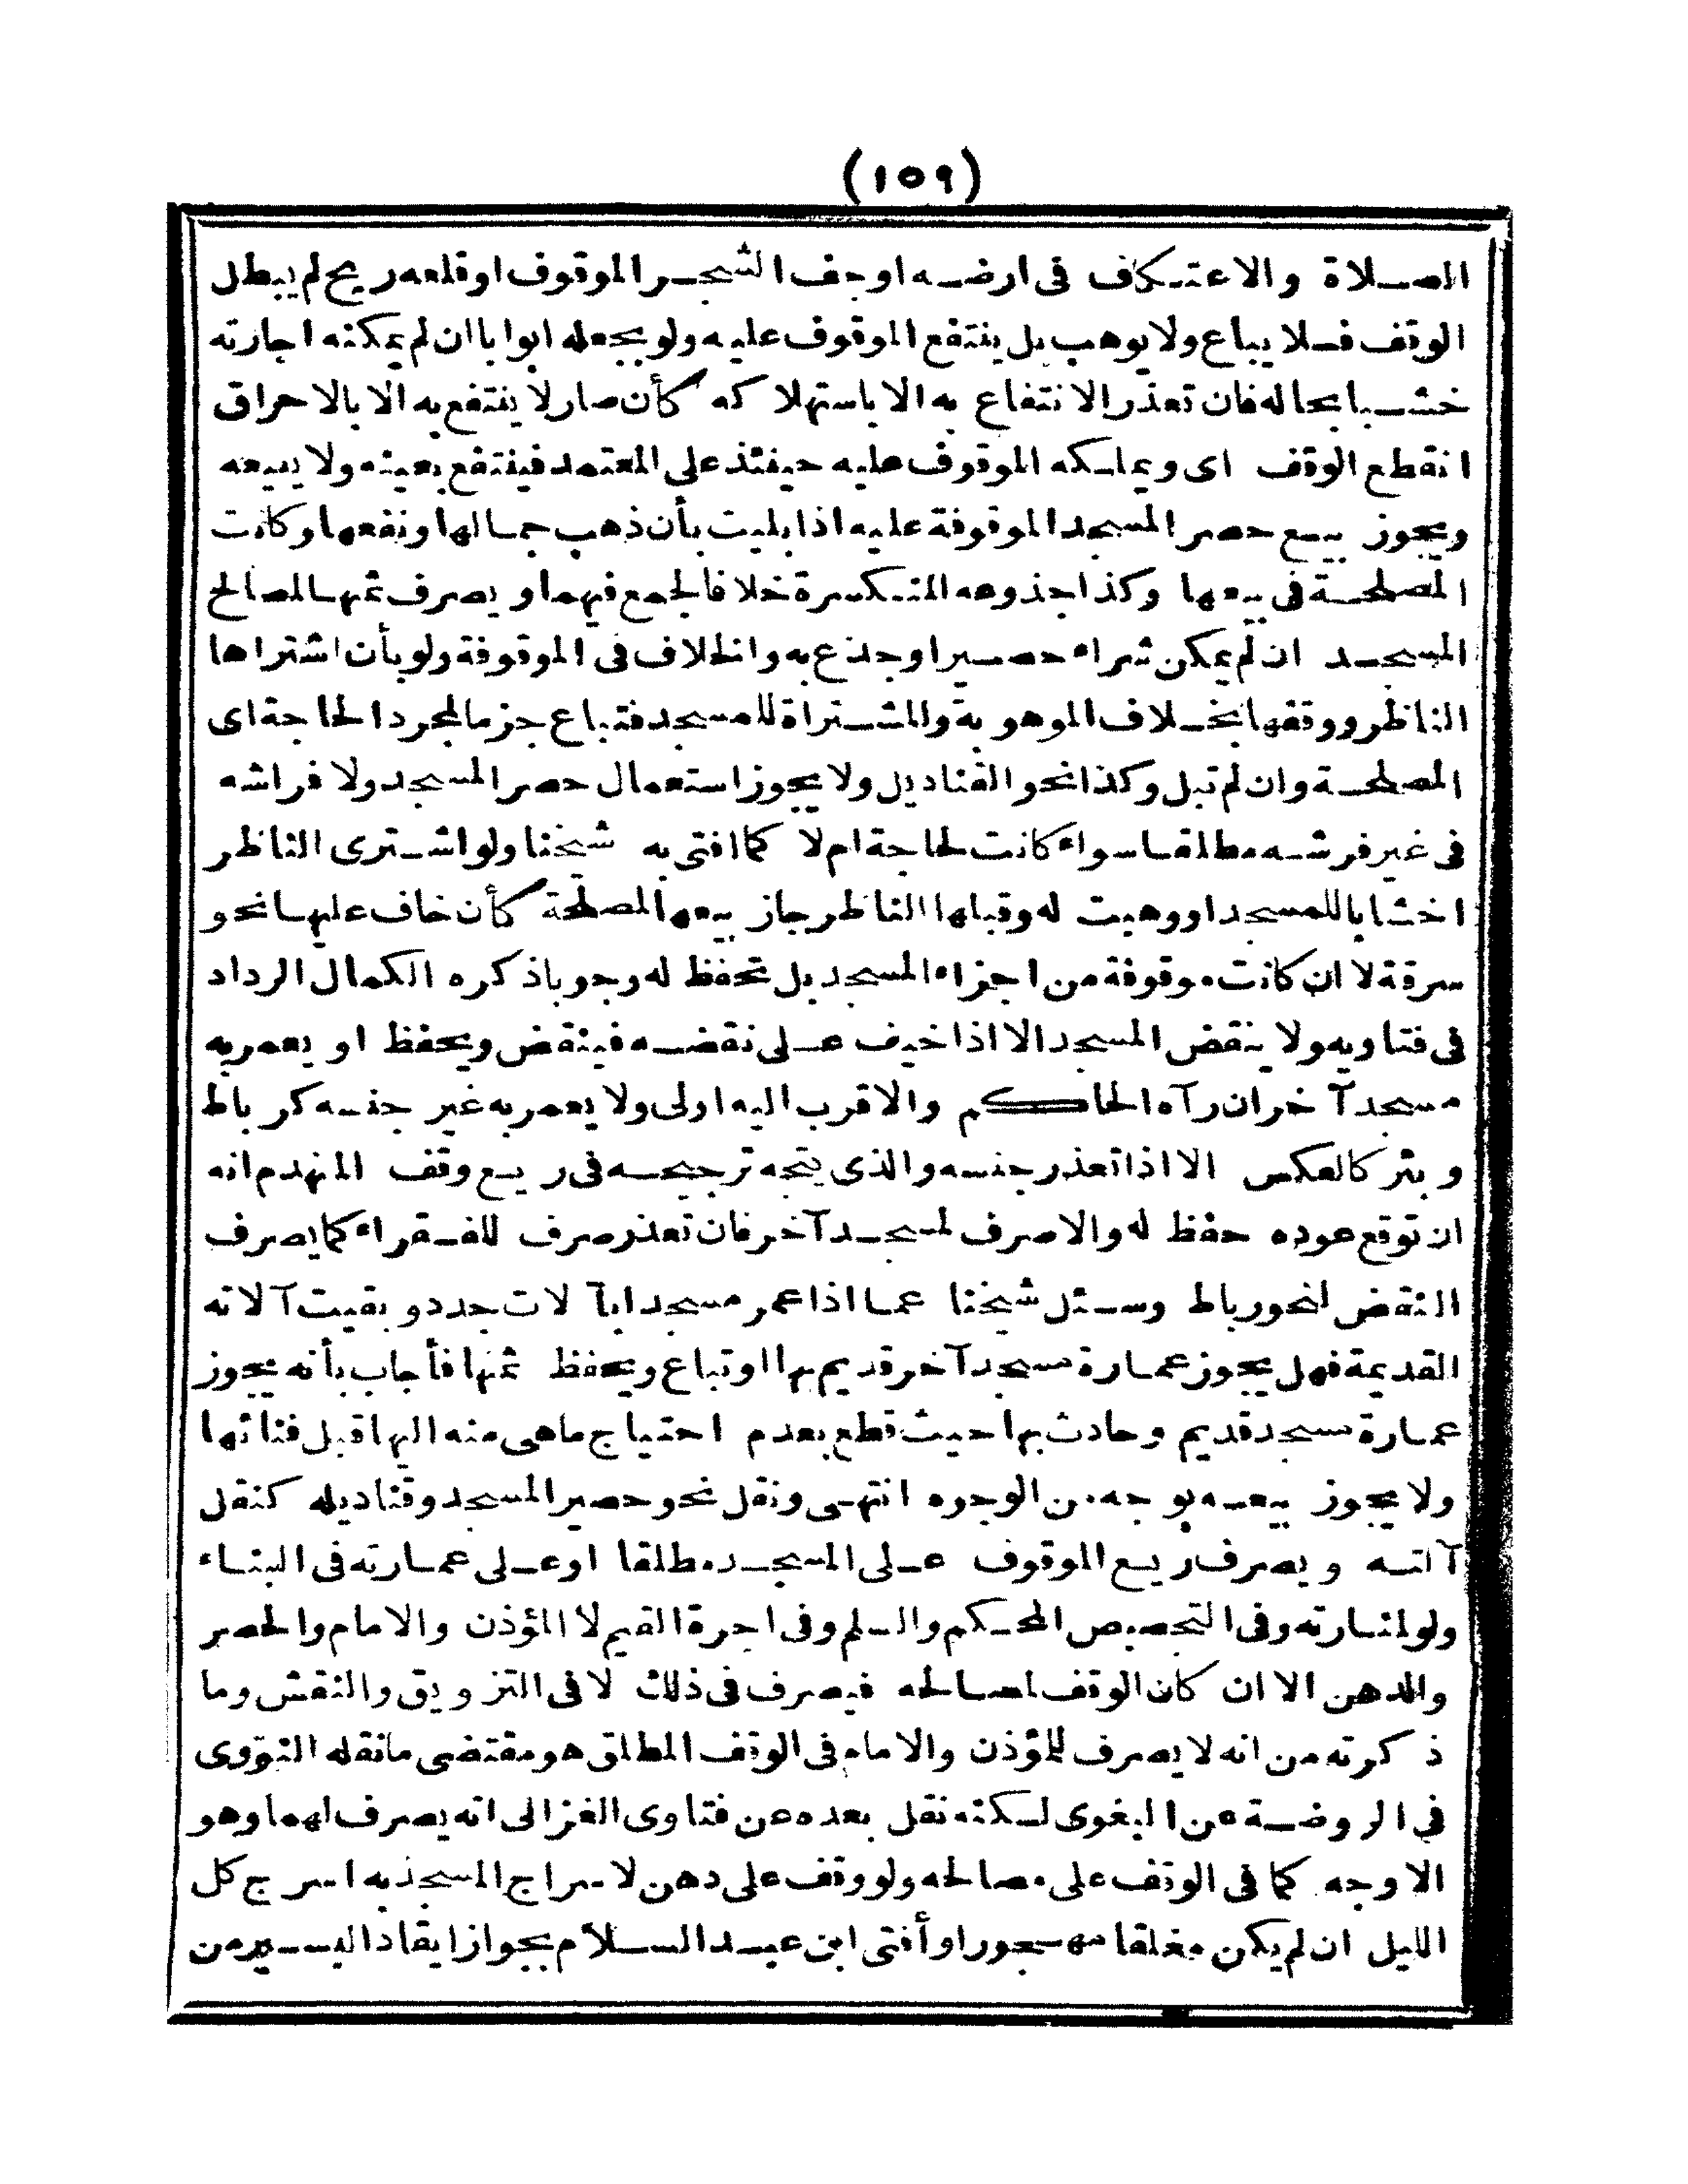 (١٥٩)
الصلاة والاعتكاف فى ارضه او جف الشجر الموقوف او قلعه ريح لم يبطل
الوقف فلا يباع ولا يوهب بل ينتفع الموقوف عليه ولو بجعله ابوابا ان لم يمكنه اجارته
خشبا بحاله فان تعذر الانتفاع به الا باستهلاكه كأن صار لا ينتفع به الا بالاحراق
انقطع الوقف اى ويملكه الموقوف عليه حينئذ على المعتمد فينتفع بعينه ولا يبيعه
ويجوز بيع حصر المسجد الموقوفة عليه اذا بليت بأن ذهب جمالها ونفعها وكانت
المصلحة فى بيعها وكذا جذوعه المنكسرة خلافا لجمع فيهما ويصرف ثمنها لمصالح
المسجد ان لم يمكن شراء حصير او جذع به والخلاف فى الموقوفة ولو بأن اشتراها
الناظر ووقفها بخلاف الموهوبة والمشتراة للمسجد فتباع جزما لمجرد الحاجة اى
المصلحة وان لم تبل وكذا نحو القناديل ولا يجوز استعمال حصر المسجد ولا فراشه
فى غير فرشه مطلقا سواء كانت لحاجة ام لا كما افتى به شيخنا ولو اشترى الناظر
اخشابا للمسجد او وهبت له وقبلها الناظر جاز بيعها لمصلحة كأن خاف عليها نحو
سرقة لا ان كانت موقوفة من اجزاء المسجد بل تحفظ له وجوبا ذكره الكمال الرداد
فى فتاويه ولا ينقض المسجد الا اذا خيف على نقضه فينقض ويحفظ او يعمر به
مسجد آخر ان رآه الحاكم والاقرب اليه اولى ولا يعمر به غير جنسه كرباط
وبئر كالعكس الا اذا تعذر جنسه والذى يتجه ترجيحه فى ريع وقف المنهدم انه
ان توقع عوده حفظ له والا صرف لمسجد آخر فان تعذر صرف للفقراء كما يصرف
النقض لنحو رباط وسئل شيخنا عما اذا عمر مسجد ابآ لات جدد وبقيت آلاته
القديمة فهل يجوز عمارة مسجد آخر قديم بها او تباع ويحفظ ثمنها فأجاب بأنه يجوز
عمارة مسجد قديم وحادث بها حيث قطع بعدم احتياج ما هى منه اليها قبل فنائها
ولا يجوز بيعه بوجه من الوجوه انتهى ونقل نحو حصير المسجد وقناديله كنقل
آلته ويصرف ريع الموقوف على المسجد مطلقا او على عمارته فى البناء
ولو لمنارته وفى التجصيص المحكم والسلم وفى اجرة القيم لا المؤذن والامام والحصر
والدهن الا ان كان الوقف لمصالحه فيصرف فى ذلك لا فى التزويق والنقش وما
ذكرته من انه لا يصرف للمؤذن والامام فى الوقف المطلق هو مقتضى ما نقله النووى
فى الروضة عن البغوى لكنه نقل بعده عن فتاوى الغزالى انه يصرف لهما وهو
الاوجه كما فى الوقف على مصالحه ولو وقف على دهن لاسراج المسجد به اسرج كل
الليل ان لم يكن مغلقا مهجورا وأفتى ابن عبد السلام بجواز ايقاد اليسير من